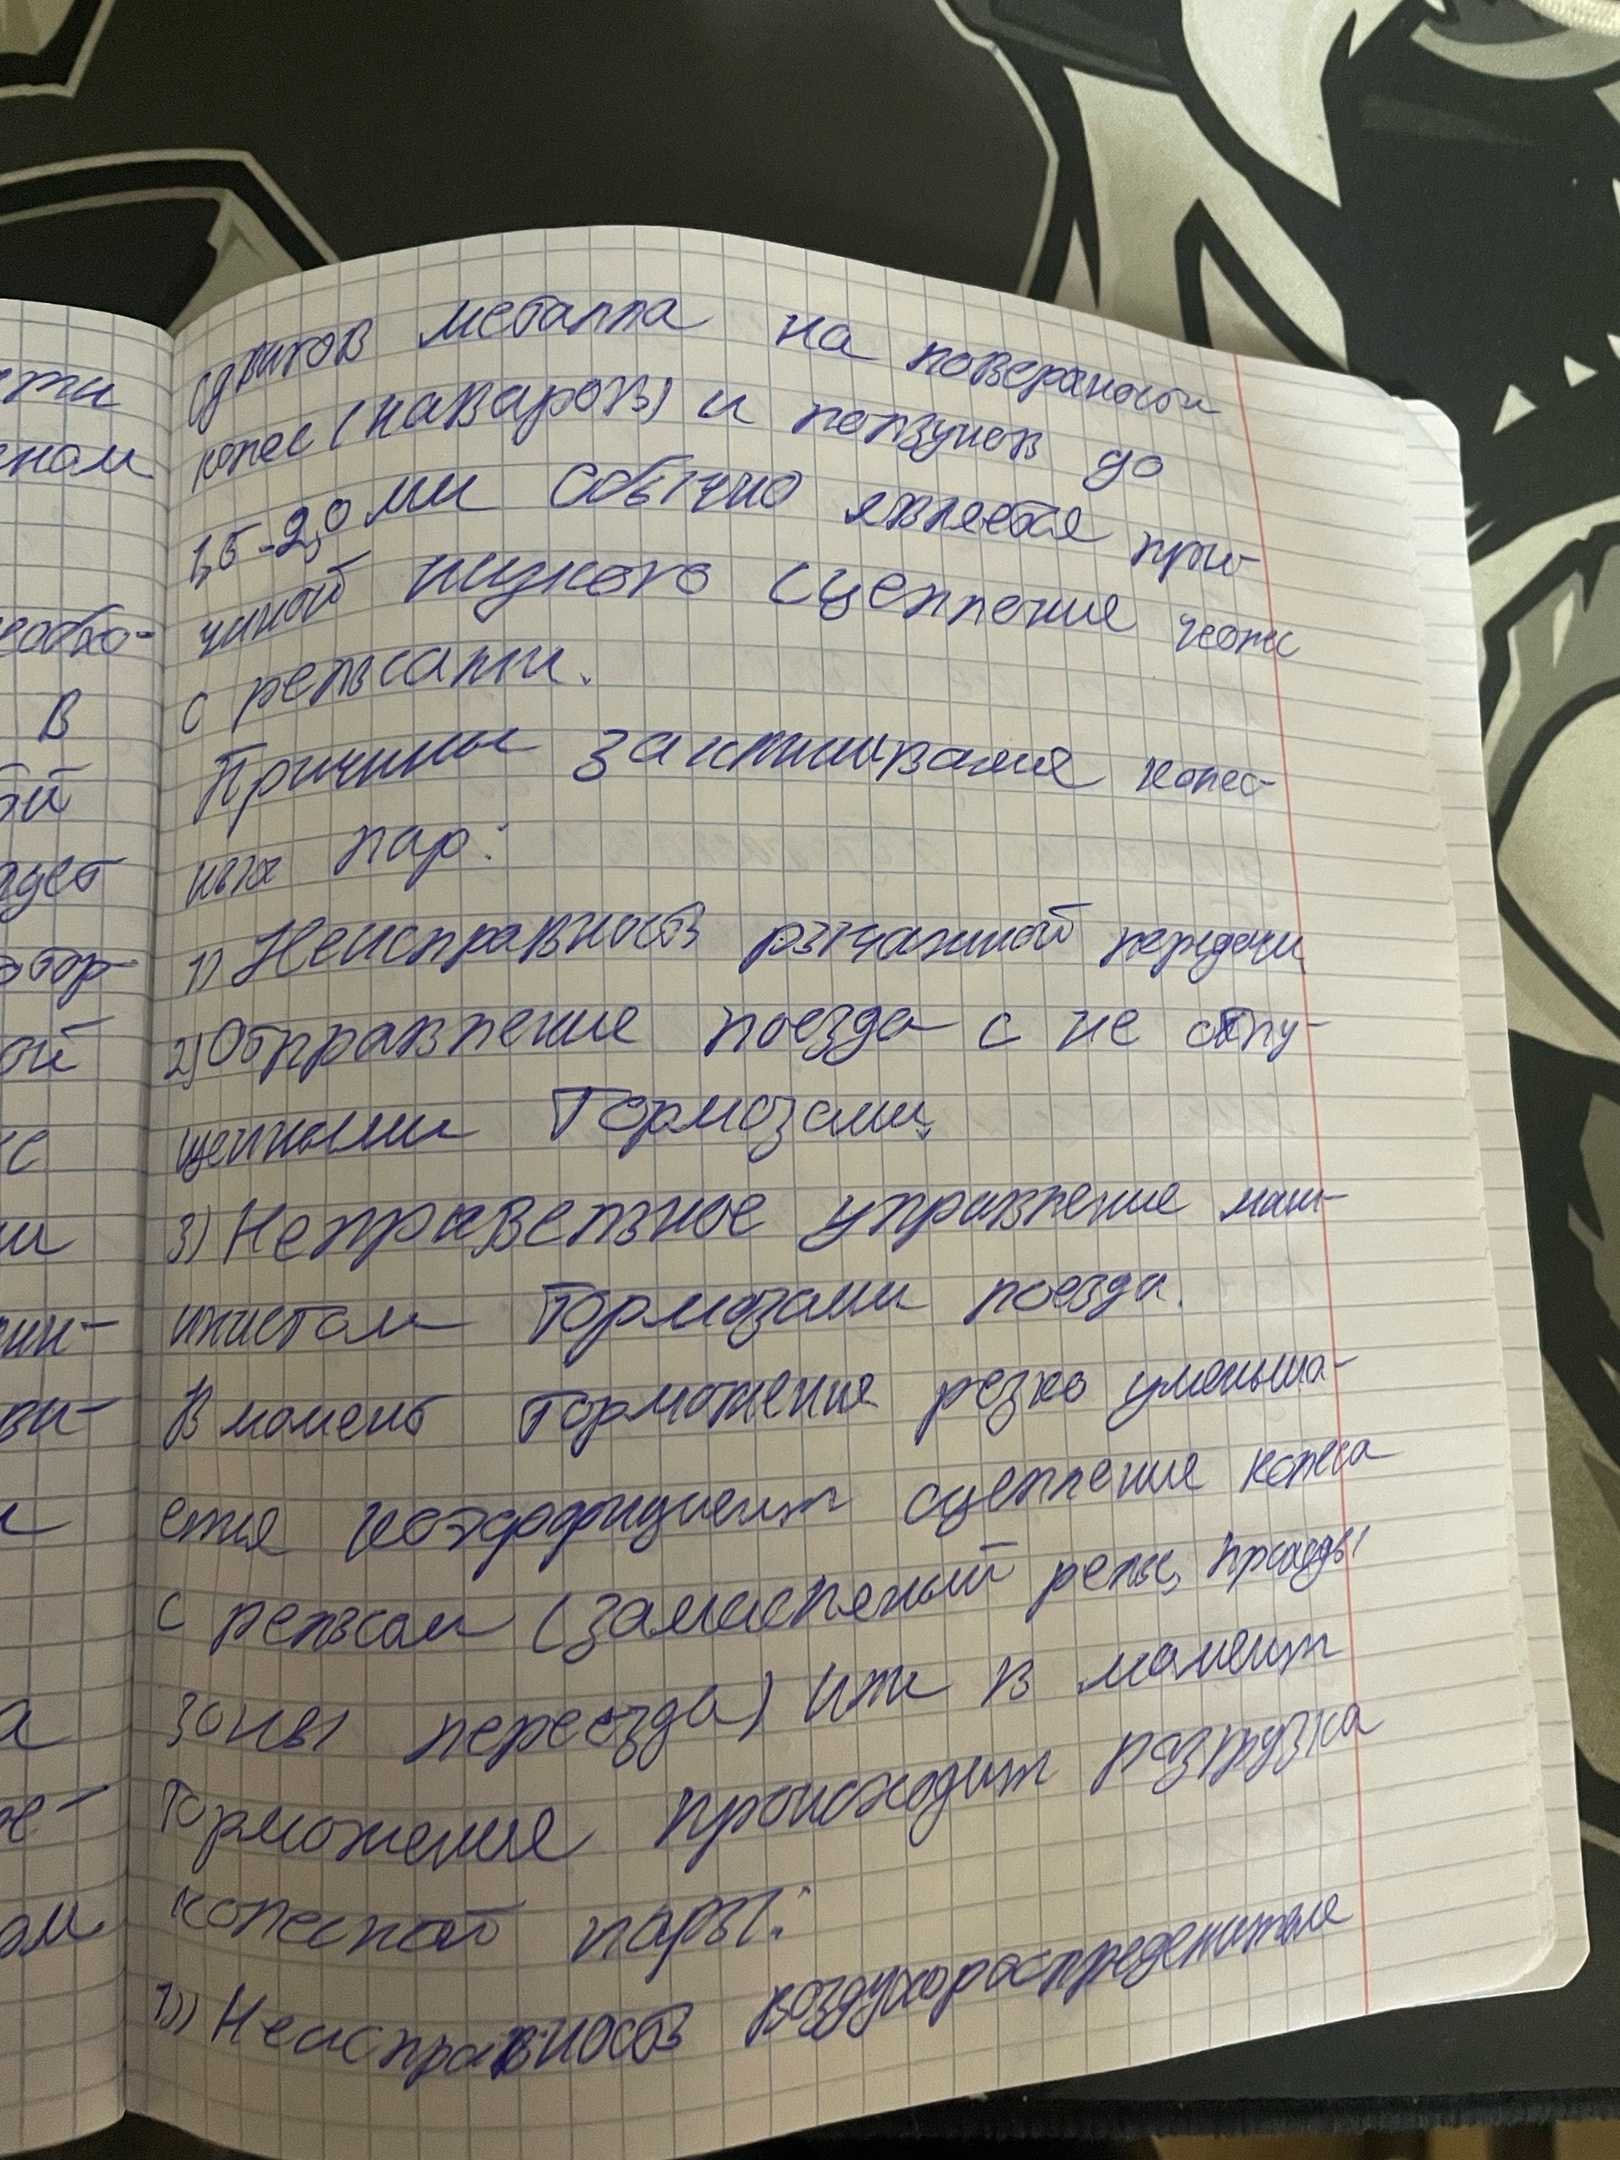 сдвигов металла на поверхности
колес (наваров) и ползунов до
1,5-2,0 мм обычно является при-
чиной низкого сцепления колес
с рельсами.
Причины заклинивания колес-
ных пар:
1) Неисправность рычажной передачи
2) Отправление поезда с не отпу-
щенными тормозами.
3) Неправельное управление маши-
инистом тормозами поезда.
В момент торможения резко уменьша-
ется коэффициент сцепление колеса
с рельсом (замасленый рельс,
зоны переезда) или в момент
торможения происходит разгрузка
колесной пары:
1)) Неисправность воздухораспределителя
ном
В
ой
ой
с
и
а
ом